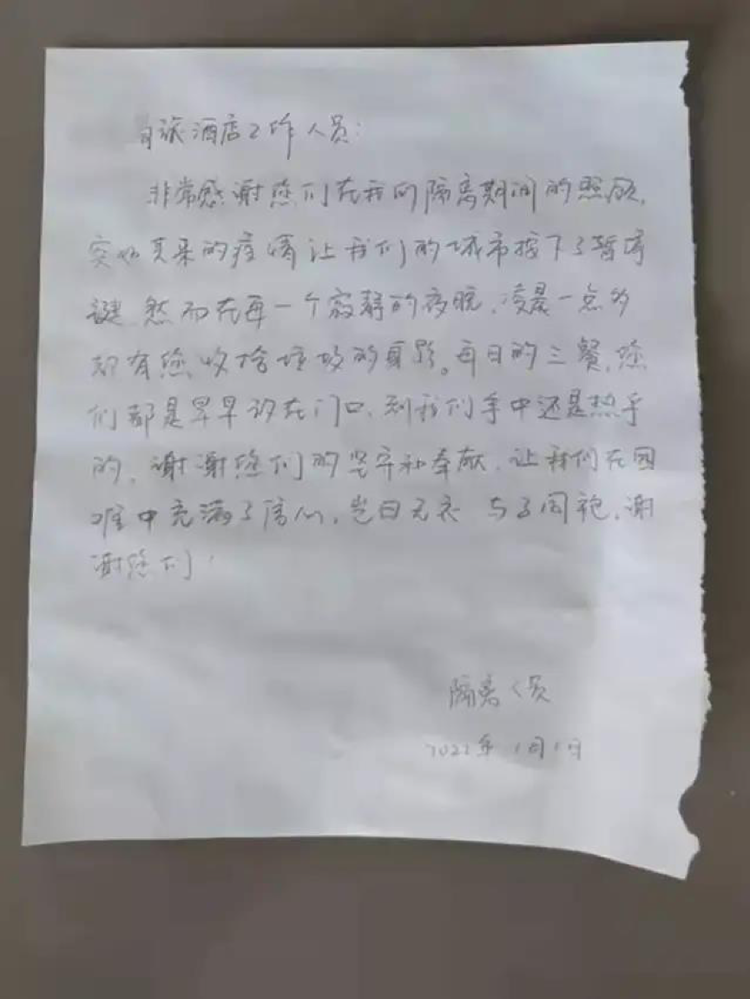 旅酒店工作人员:
非常感谢您们在我们隔离期间的照顾,
突如其来的疫情让我们的城市按下了暂停
键,然而在每一个寂静的夜晚,凌晨一点多
都有您收拾垃圾的身影。每日的三餐,您
们都是早早放在门口,到我们手中还是热乎
的,谢谢您们的坚守和奉献,让我们在困
难中充满了信心,岂曰无衣 与子同袍,谢
谢您们.
隔离人员
2022年1月1日